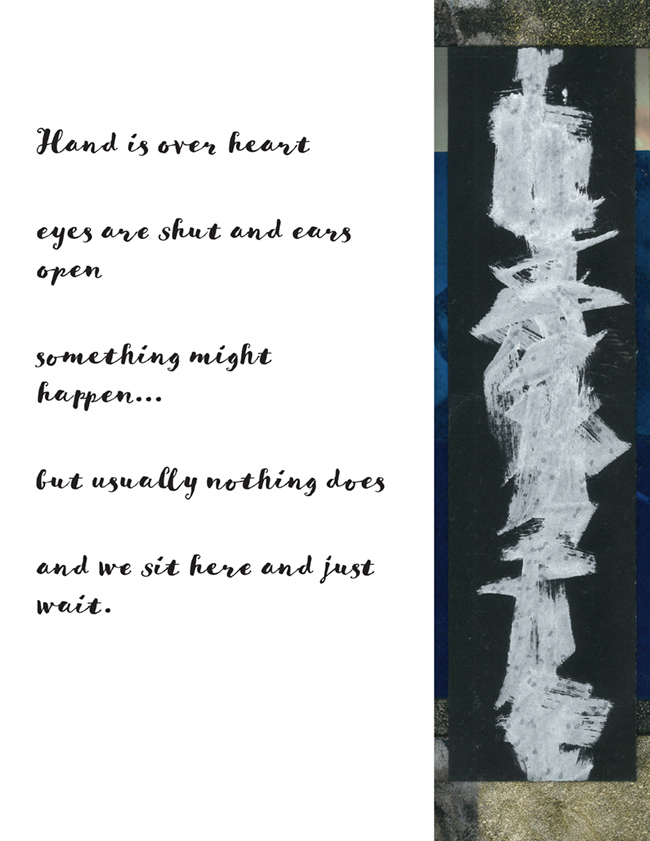 Hand is over heart
eyes are shut and ears
open
something might
happen...
but usually nothing does
and we sit here and just
wait.